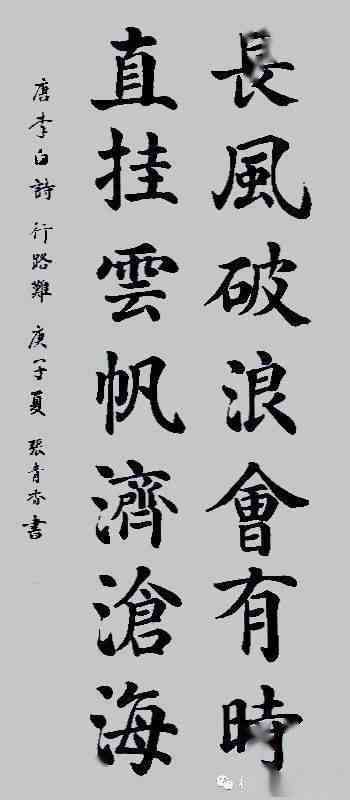 長風破浪會有時
直挂雲帆濟滄海
唐李白詩行路難庚子夏張青香書